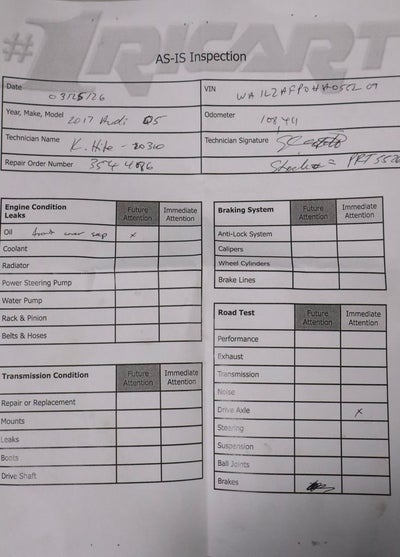 #1 RICART
AS-IS Inspection
Date 03/25/26
VIN
Year, Make, Model 2017 Audi Q5
Odometer
Technician Name K. Hite - 20310
Technician Signature
Repair Order Number 3544086
Engine Condition
Leaks
Future Attention
Immediate Attention
Oil front cover seep x
Coolant
Radiator
Power Steering Pump
Water Pump
Rack & Pinion
Belts & Hoses
Transmission Condition
Future Attention
Immediate Attention
Repair or Replacement
Mounts
Leaks
Boots
Drive Shaft
Braking System
Future Attention
Immediate Attention
Anti-Lock System
Calipers
Wheel Cylinders
Brake Lines
Road Test
Future Attention
Immediate Attention
Performance
Exhaust
Transmission
Noise
Drive Axle x
Steering
Suspension
Ball Joints
Brakes